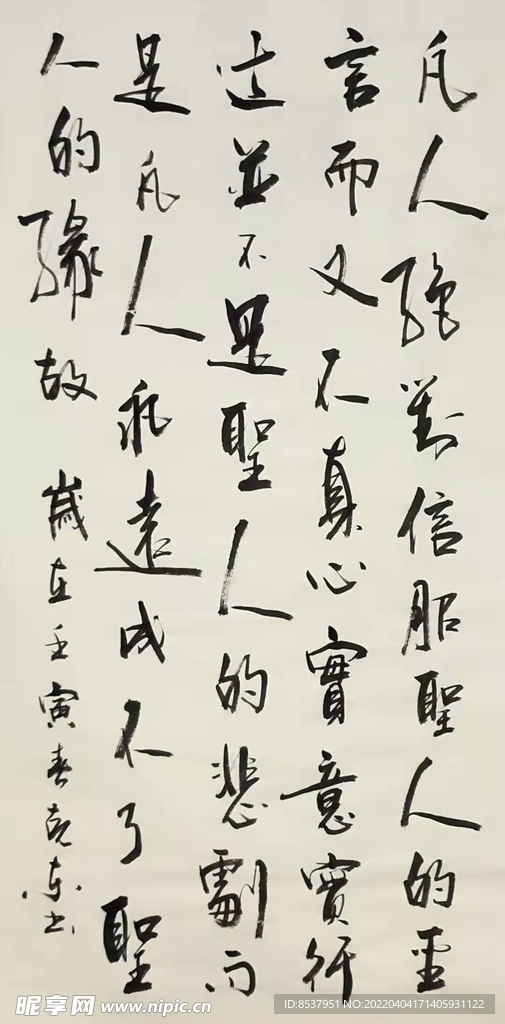 凡人絕對信服聖人的聖
言而又不真心實意實行
這並不是聖人的悲劇而
是凡人永遠成不了聖
人的緣故
歲在壬寅春克東書
昵享网 www.nipic.cn
ID:8537951 NO:20220404171405931122